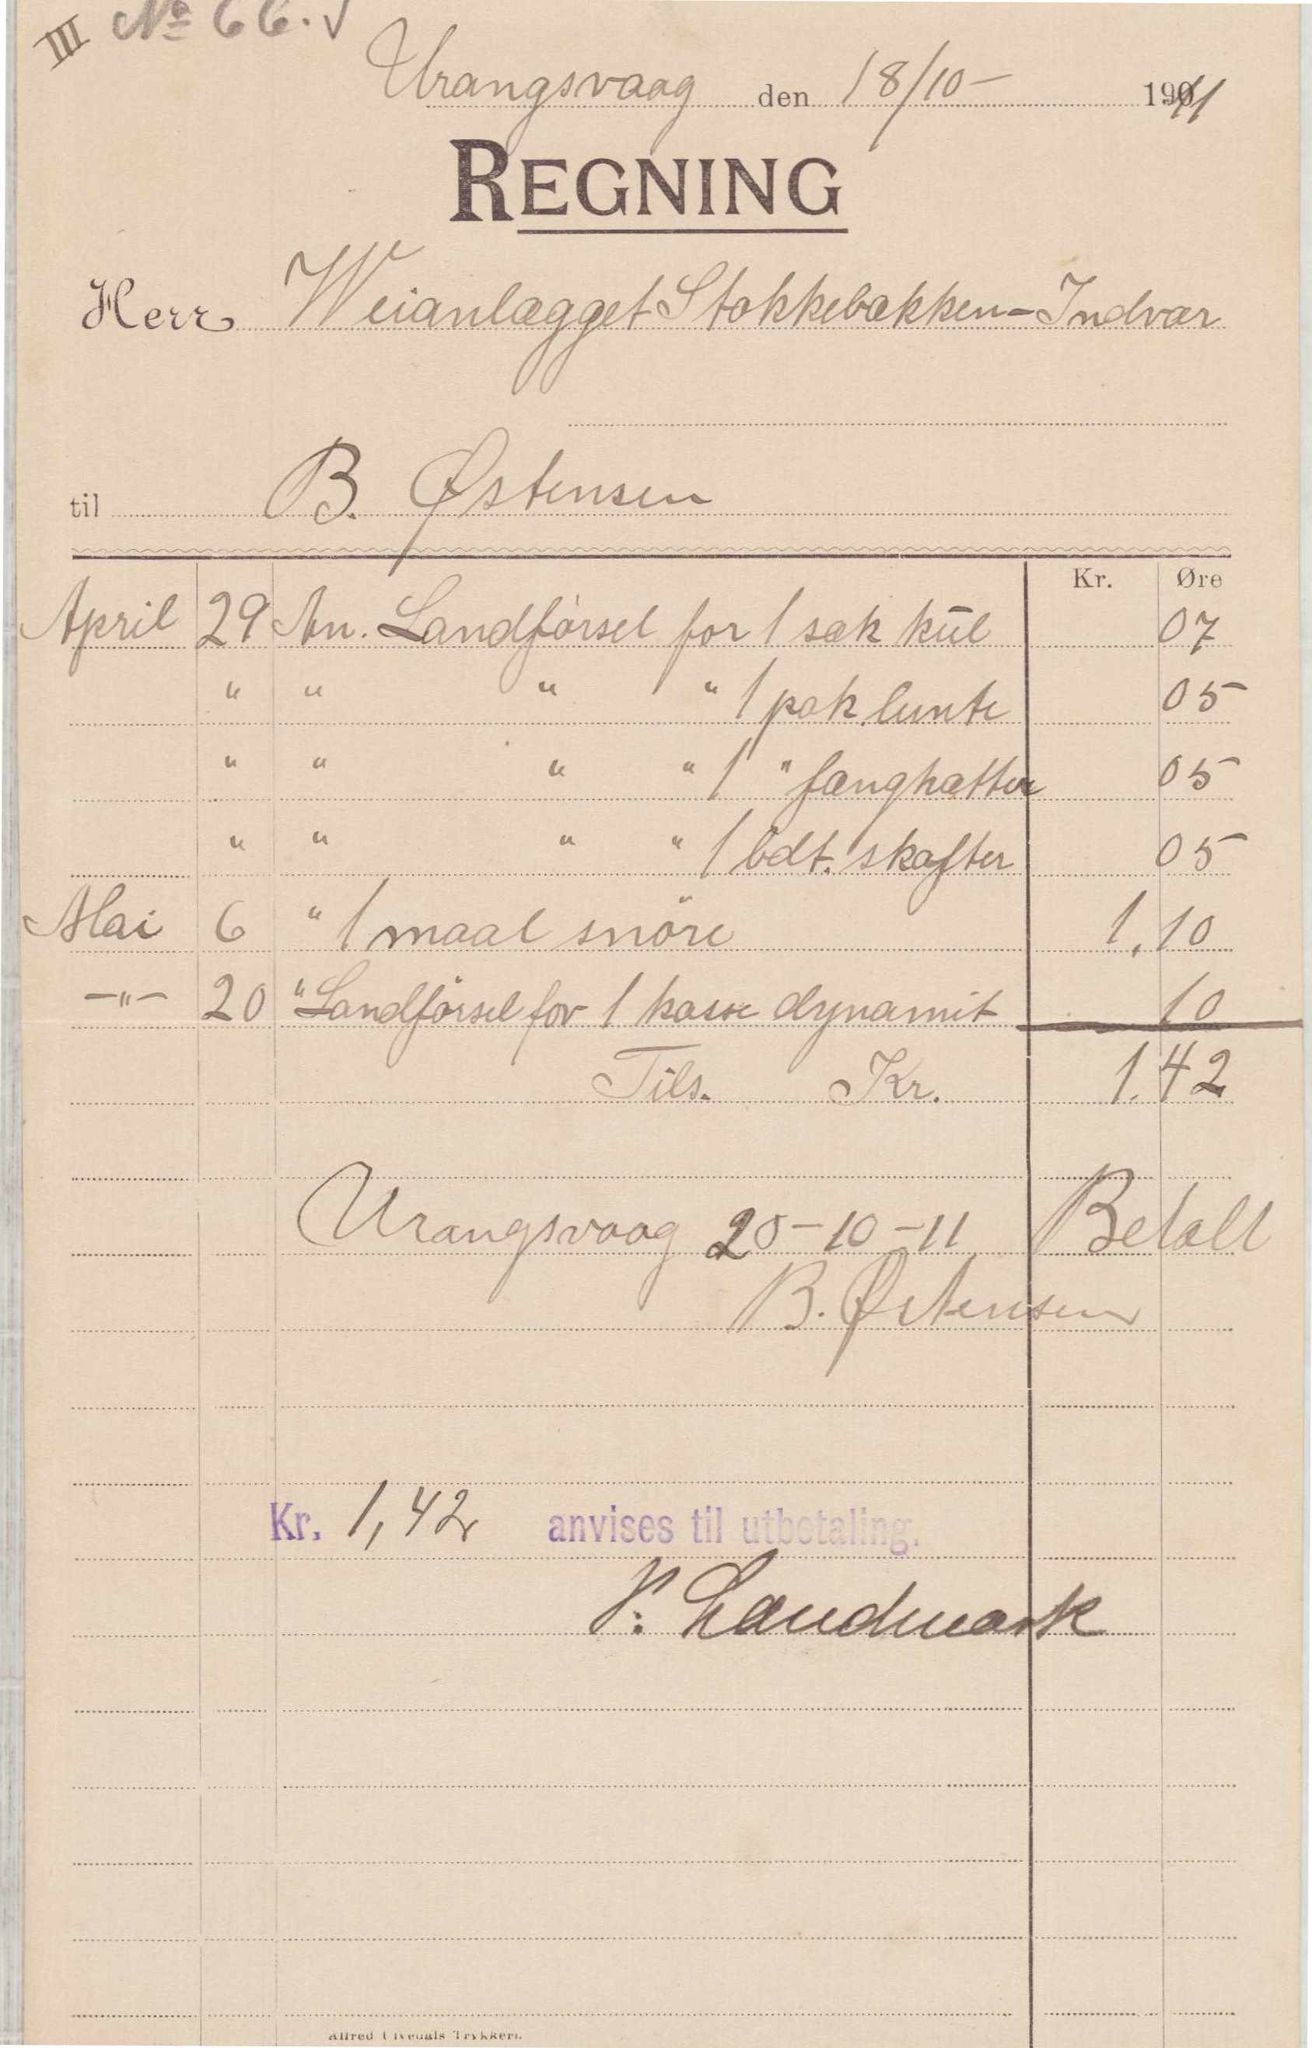 III № 66.
Urangsvaag den 18/10- 1911
REGNING
Herr Weianlægget Stokkebækken-Indvær
til B. Østensen
Kr. Øre
April 29 An. Landförsel for 1 sæk kul 07
" " " " 1 pak lunte 05
" " " " 1 " fænghætter 05
" " " " 1 bdt. skafter 05
Mai 6 " 1 maal snöre 1.10
-"- 20 " Landförsel for 1 kasse dynamit 10
Tils. Kr. 1.42
Urangsvaag 20-10-11 Betalt
B. Østensen
Kr. 1,42 anvises til utbetaling.
Landmark
Alfred Trykkeri.